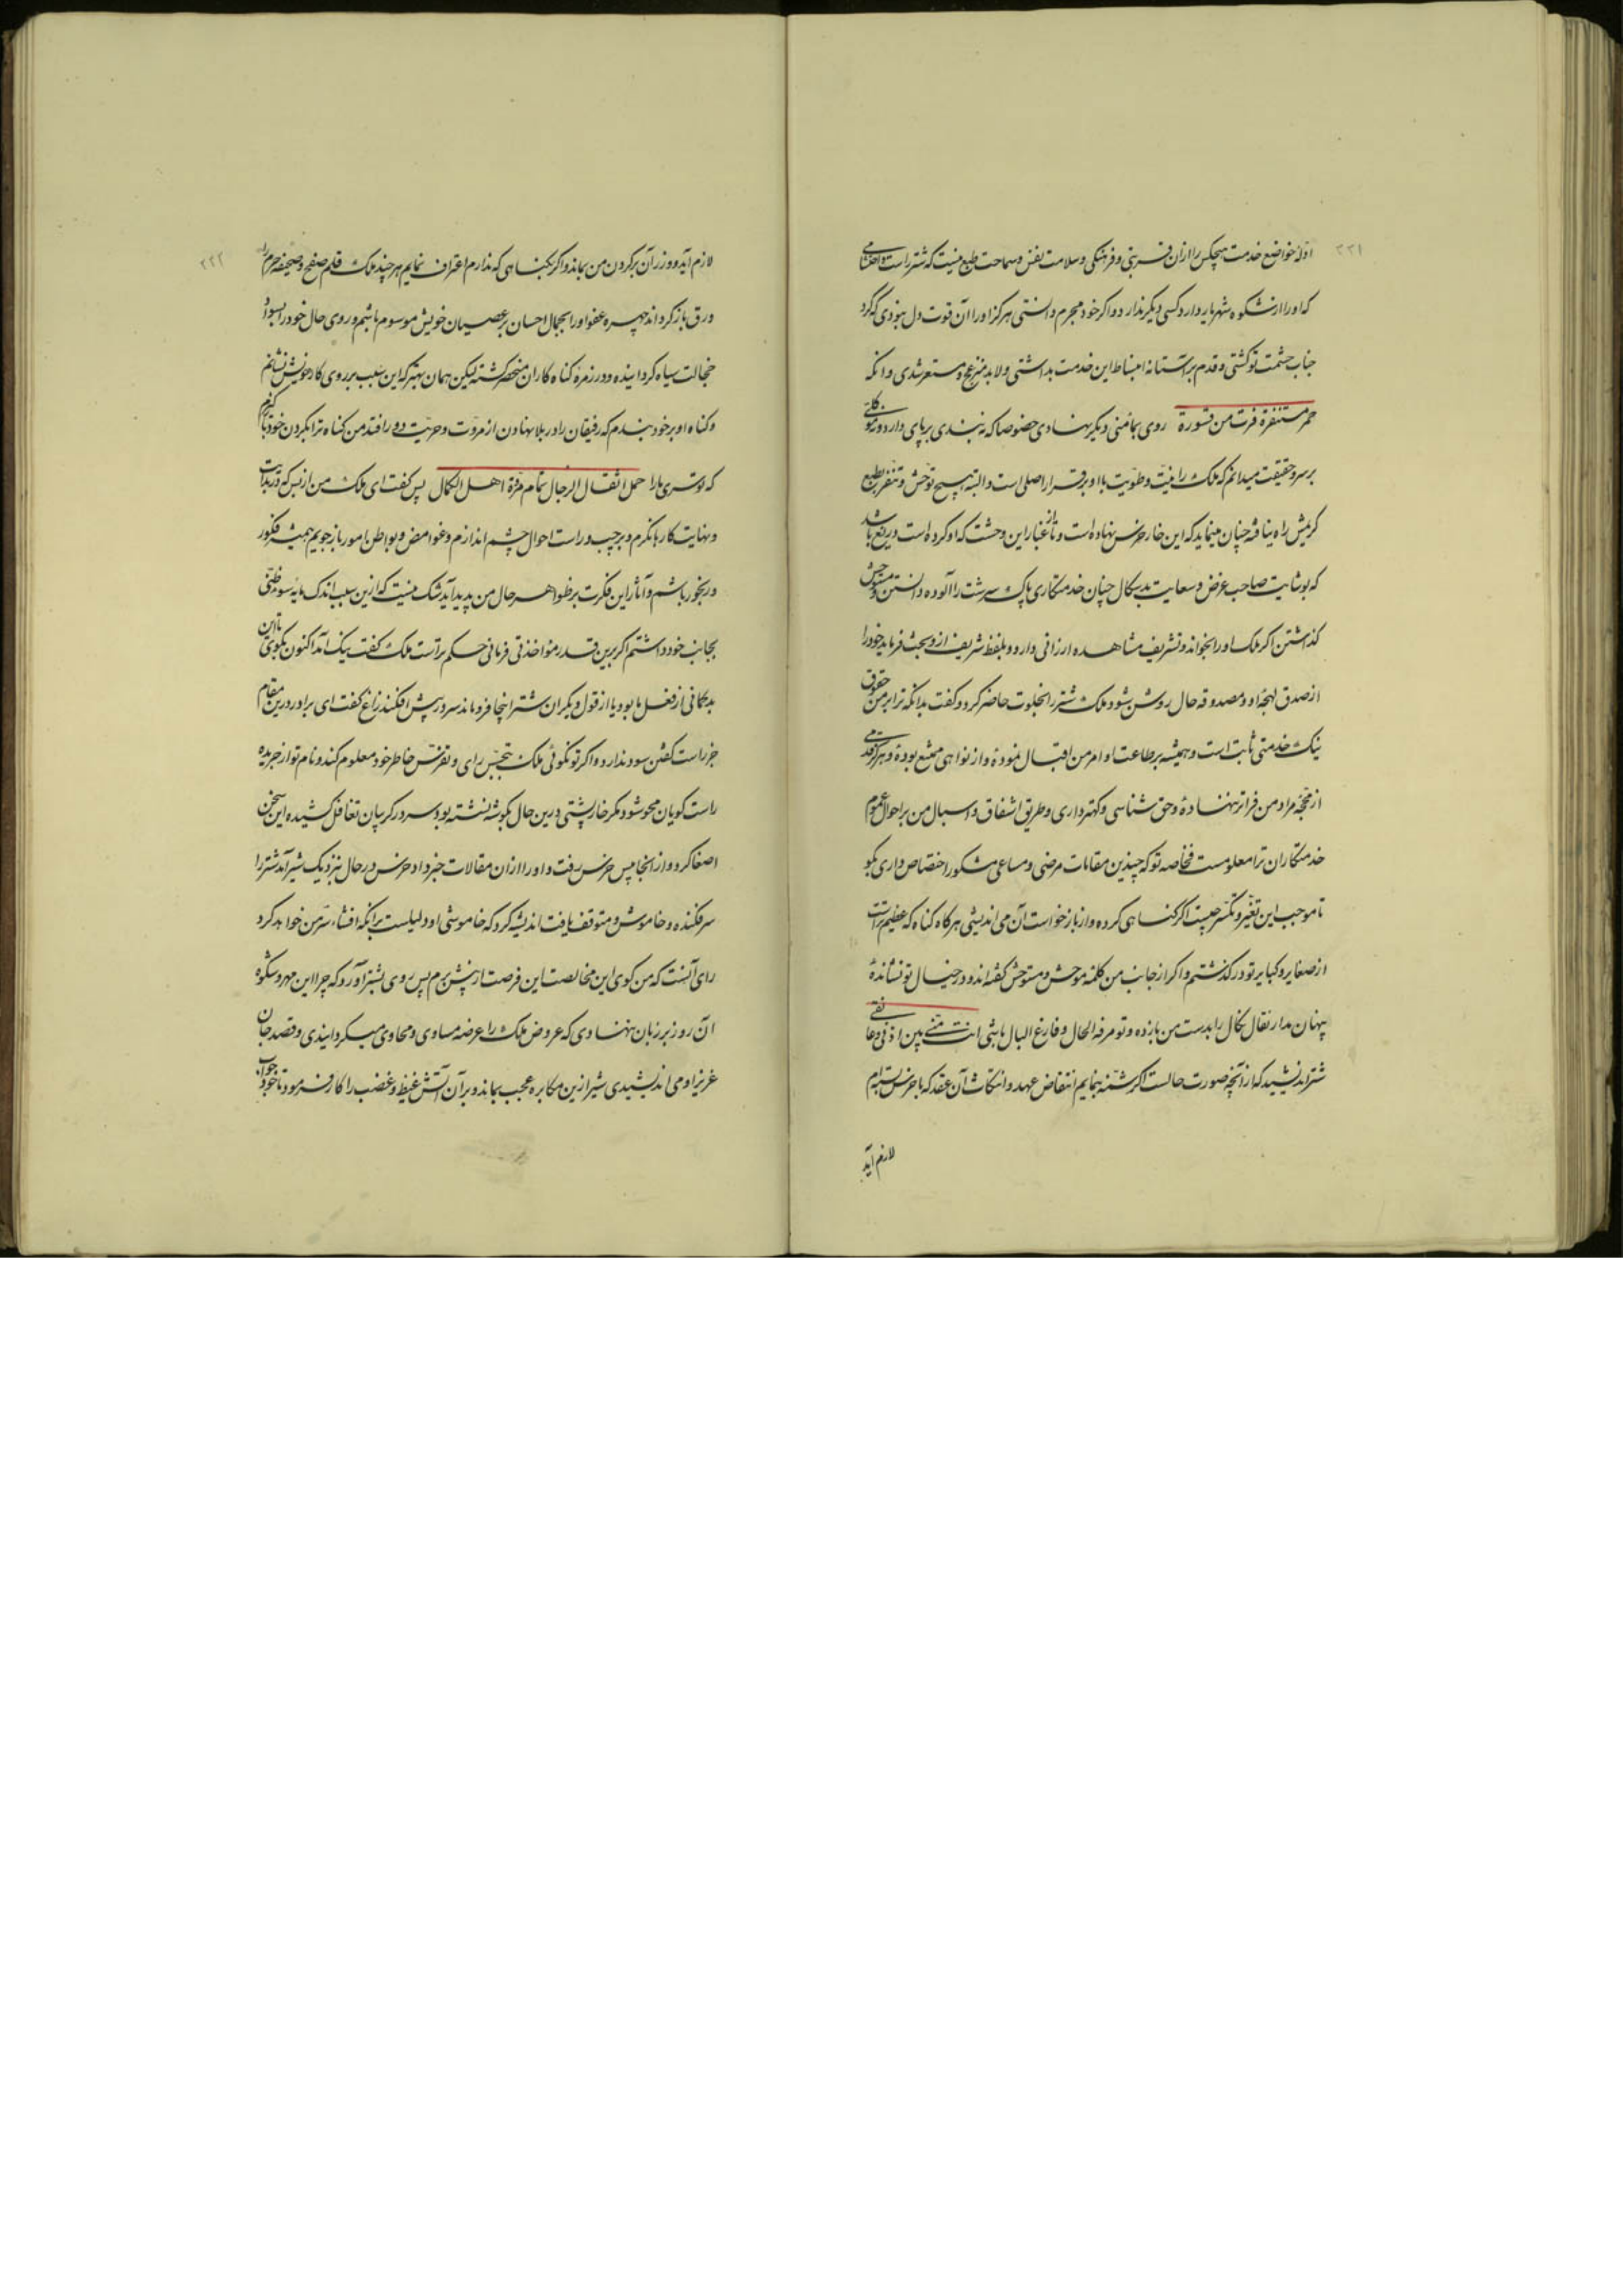 ۲۲۱
ادلهٔ خواضع خدمت هیچکس را ازان فربینی و فرهنگی و سلامت نفس و سماحت طبع نیست که شتر راست و اعتنامی
که او را از شکوه شهریار دارد کسی دیگر ندارد و اگر خود مجرم دانستی هرگز او را آن قوت دل نبودی که گرد
جناب حشمت تو گشتی و قدم بر آستانهٔ انبساط این خدمت نداشتی و لابد منزعج و مستشعر شدی و انکه
حمر مستنفرة فرت من قسورة روی بمأمنی دیگر نهادی خصوصا که نه بندی بر پای دارد و نه موکلی
بر سر و حقیقت میدانم که ملک را نیت و طویت با او بر قرار اصلی است و البته هیچ توحش و تنفر بطبع
کریمش راه نیافته چنان مینماید که این خار خرس نهاده است و تا غبار این وحشت که او کرده است در رفع باشد
که بوشایت صاحب غرض و سعایت بدسگال چنان خدمتکاری پاک سرشت را آلوده دانستن و متوحش
گذاشتن اگر ملک او را بخواند و تشریف مشاهده ارزانی دارد و بلفظ شریف ازو بحث فرماید خود را
از صدق لهجهٔ او و مصدوقه حال روشن شود ملک شتر را بخلوت حاضر کرد و گفت بدانکه ترا بر من حقوق
نیک خدمتی ثابت است و همیشه بر طاعت اوامر من اقبال نموده و از نواهی ممتنع بوده و هرگز قدمی
از محجهٔ مراد من فراتر ننهادهٔ و حق شناسی و کهترداری و طریق اشفاق و اسبال من بر احوال عموم
خدمتکاران ترا معلومست فخاصه تو که چندین مقامات مرضی و مساعی مشکور اختصاص داری بگو
تا موجب این تغیر و تکسر چیست اگر گناهی کرده و از بازخواست آن می اندیشی هر گاه گناه که عظیم تر است
از صغایر و کبایر تو در گذشتم و اگر از جانب من کلمهٔ موحش و متوحش گفته اند و در خیال تو نشاندهٔ
پنهان مدار نقال نکال را بدست من باز ده و تو مرفه الحال و فارغ البال باشی انت منی بین اذنی و عاتقی
شتر اندیشید که از آنچه صورت حالست اگر شمّهٔ بنمایم انتقاض عهد و انتکاث آن عقد که با خرس بسته ام
لازم آید
۲۲۲
لازم آید و وزر آن بر گردن من بماند و اگر بگناهی که ندارم اعتراف نمایم هر چند ملک قلم صفح و صحیفه جرم را
ورق باز گرداند چهره عفو او را بجمال احسان بر عصیان خویش موسوم باشم و روی حال خود را بسواد
خجالت سیاه گردانیده و در زمرهٔ گناه کاران منحصر گشته لیکن همان بهتر که این سبب بر روی کار خویش نشانم
و گناه او بر خود بندم که رفیقان را در بلا نهادن از مروت و حریت دور افتد من گناه ترا بگردن خود بازگیرم
که تو سری مارا حمل اثقال الرجال تمام مرّة اهل الکمال پس گفت ای ملک من از بس که در بدایت
و نهایت کارها نگرم و بر چپ و راست احوال چشم اندازم و غوامض و بواطن امور باز جویم همیشه فکور
و رنجور باشم و آثار این فکرت بر ظواهر حال من پدید آید شک نیست که ازین سبب اندک مایه سوء ظنی
بجانب خود داشتم اگر برین قدر مؤاخذتی فرمائی حکم تراست ملک گفت نیک آمد اکنون بگوی تا این
بدگمانی از فعل ما بود یا از قول دیگران شتر اینجا فرو ماند سر در پیش افکند زاغ گفت ای برادر درین مقام
جز راست گفتن سود ندارد و اگر تو نگوئی ملک بتجسس رای و تفرس خاطر خود معلوم کند و نام تو از جریده
راست گویان محو شود مگر خارپشتی درین حال بگوشه نشسته بود سر در گریبان تغافل کشیده این سخن
اصغا کرد و از آنجا پس خرس رفت و او را از ان مقالات خبر داد خرس در حال نزدیک شیر آمد شتر را
سر فکنده و خاموش و متوقف یافت اندیشه کرد که خاموشی او دلیلست بر انکه افشاء سر من خواهد کرد
رای آنست که من گوی این مخالصت این فرصت از پیش برم پس روی بشتر آورد که چرا این مهر و سکوة
آن روز بر زبان ننهادی که عروض ملک را عرضه مساوی و محاوی میگردانیدی و قصد جان
عزیز او می اندیشیدی شیر ازین مکابره عجب بماند و بر آن آتش غیظ و غضب را کار فرمود تا خود جواب